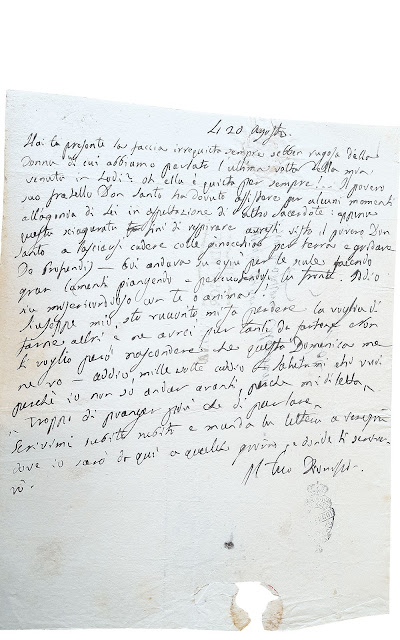 Li 20 agosto.
Hai tu presente la faccia irrequieta sempre sebben rugosa della
Donna di cui abbiamo parlato l'ultima volta della mia
venuta in Lodi? oh ella è quieta per sempre!... Il povero
suo fratello Don Santo ha dovuto assistere per alcuni momenti
all'agonia di Lei in aspettazione di altro Sacerdote: appena
questa sciagurata finì di respirare avresti visto il povero Don
Santo a lasciarsi cadere colle ginocchia per terra e gridare
De Profundis — Ei andava su e giù per le scale facendo
gran lamenti piangendo e percuotendosi la fronte Iddio
sia misericordioso con te o anima!
Giuseppe mio, sto racconto mi fa perdere la voglia di
farne altri e ne avrei per tanti da
ti voglio però nascondere che questa Domenica me
ne vo — addio, mille volte addio — salutami chi vuoi
perchè io non so andar avanti, perchè mi diletta
troppo di pianger più che di parlare
Scrivimi subito subito e manda la lettera a
dove io sarò da qui a qualche giorno e donde ti scrive-
rò.
Il tuo